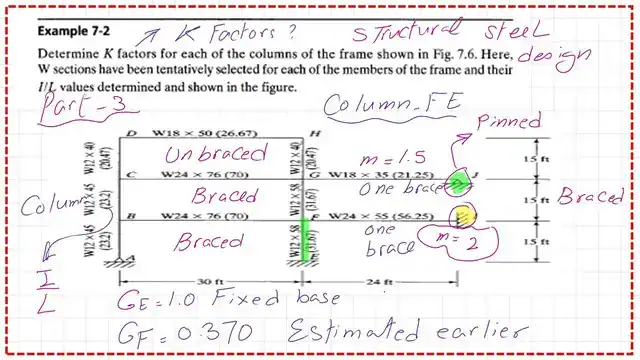 Example 7-2
K Factors? structural steel
Determine K factors for each of the columns of the frame shown in Fig. 7.6. Here, design
W sections have been tentatively selected for each of the members of the frame and their
I/L values determined and shown in the figure.
Part-3
Column-FE
Pinned
D W18 × 50 (26.67) H
W12 × 40
(20.47)
Unbraced
W12 × 40
(20.47)
m=1.5
15 ft
C W24 × 76 (70) G W18 × 35 (21.25) J
one brace
Column
W12 × 45
(23.2)
Braced
W12 × 58
(31.67)
15 ft
Braced
B W24 × 76 (70) F W24 × 55 (56.25)
one
brace
m=2
W12 × 45
(23.2)
Braced
W12 × 58
(31.67)
15 ft
A
I
L
30 ft
24 ft
GE=1.0 Fixed base
GF=0.370 Estimated earlier